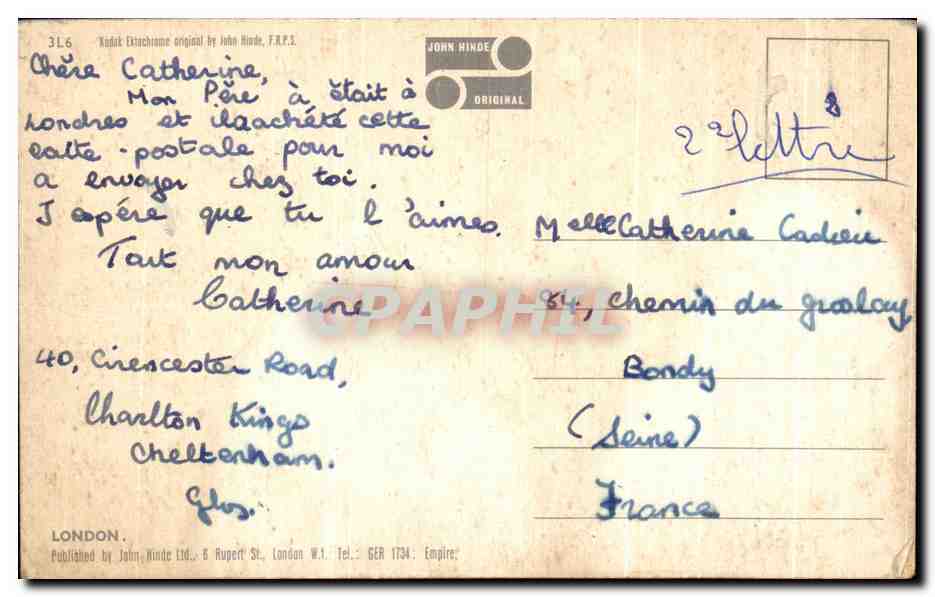 3L6 Kodak Ektachrome original by John Hinde, F.R.P.S.
JOHN HINDE
ORIGINAL
Chère Catherine,
Mon Père à était à
Londres et ilaachété cette
calte-postale pour moi
a envoyer chez toi.
J espére que tu l'aimes.
Tout mon amour
Catherine
40, Cirencester Road,
Charlton Kings
Cheltenham.
Glos.
2e lettre
Melle Catherine
84, chemin du
Bondy
(Seine)
France
GPAPHIL
LONDON.
Published by John Hinde Ltd., 6 Rupert St., London W.1. Tel.: GER 1734: Empire: